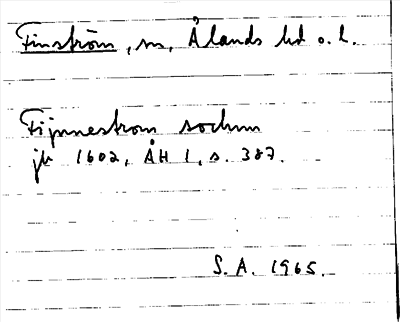 Finström, sn, Ålands hd o. l.
Fijnnestrom sochnn
jb 1602, ÅH 1, s. 387.
S. A. 1965.